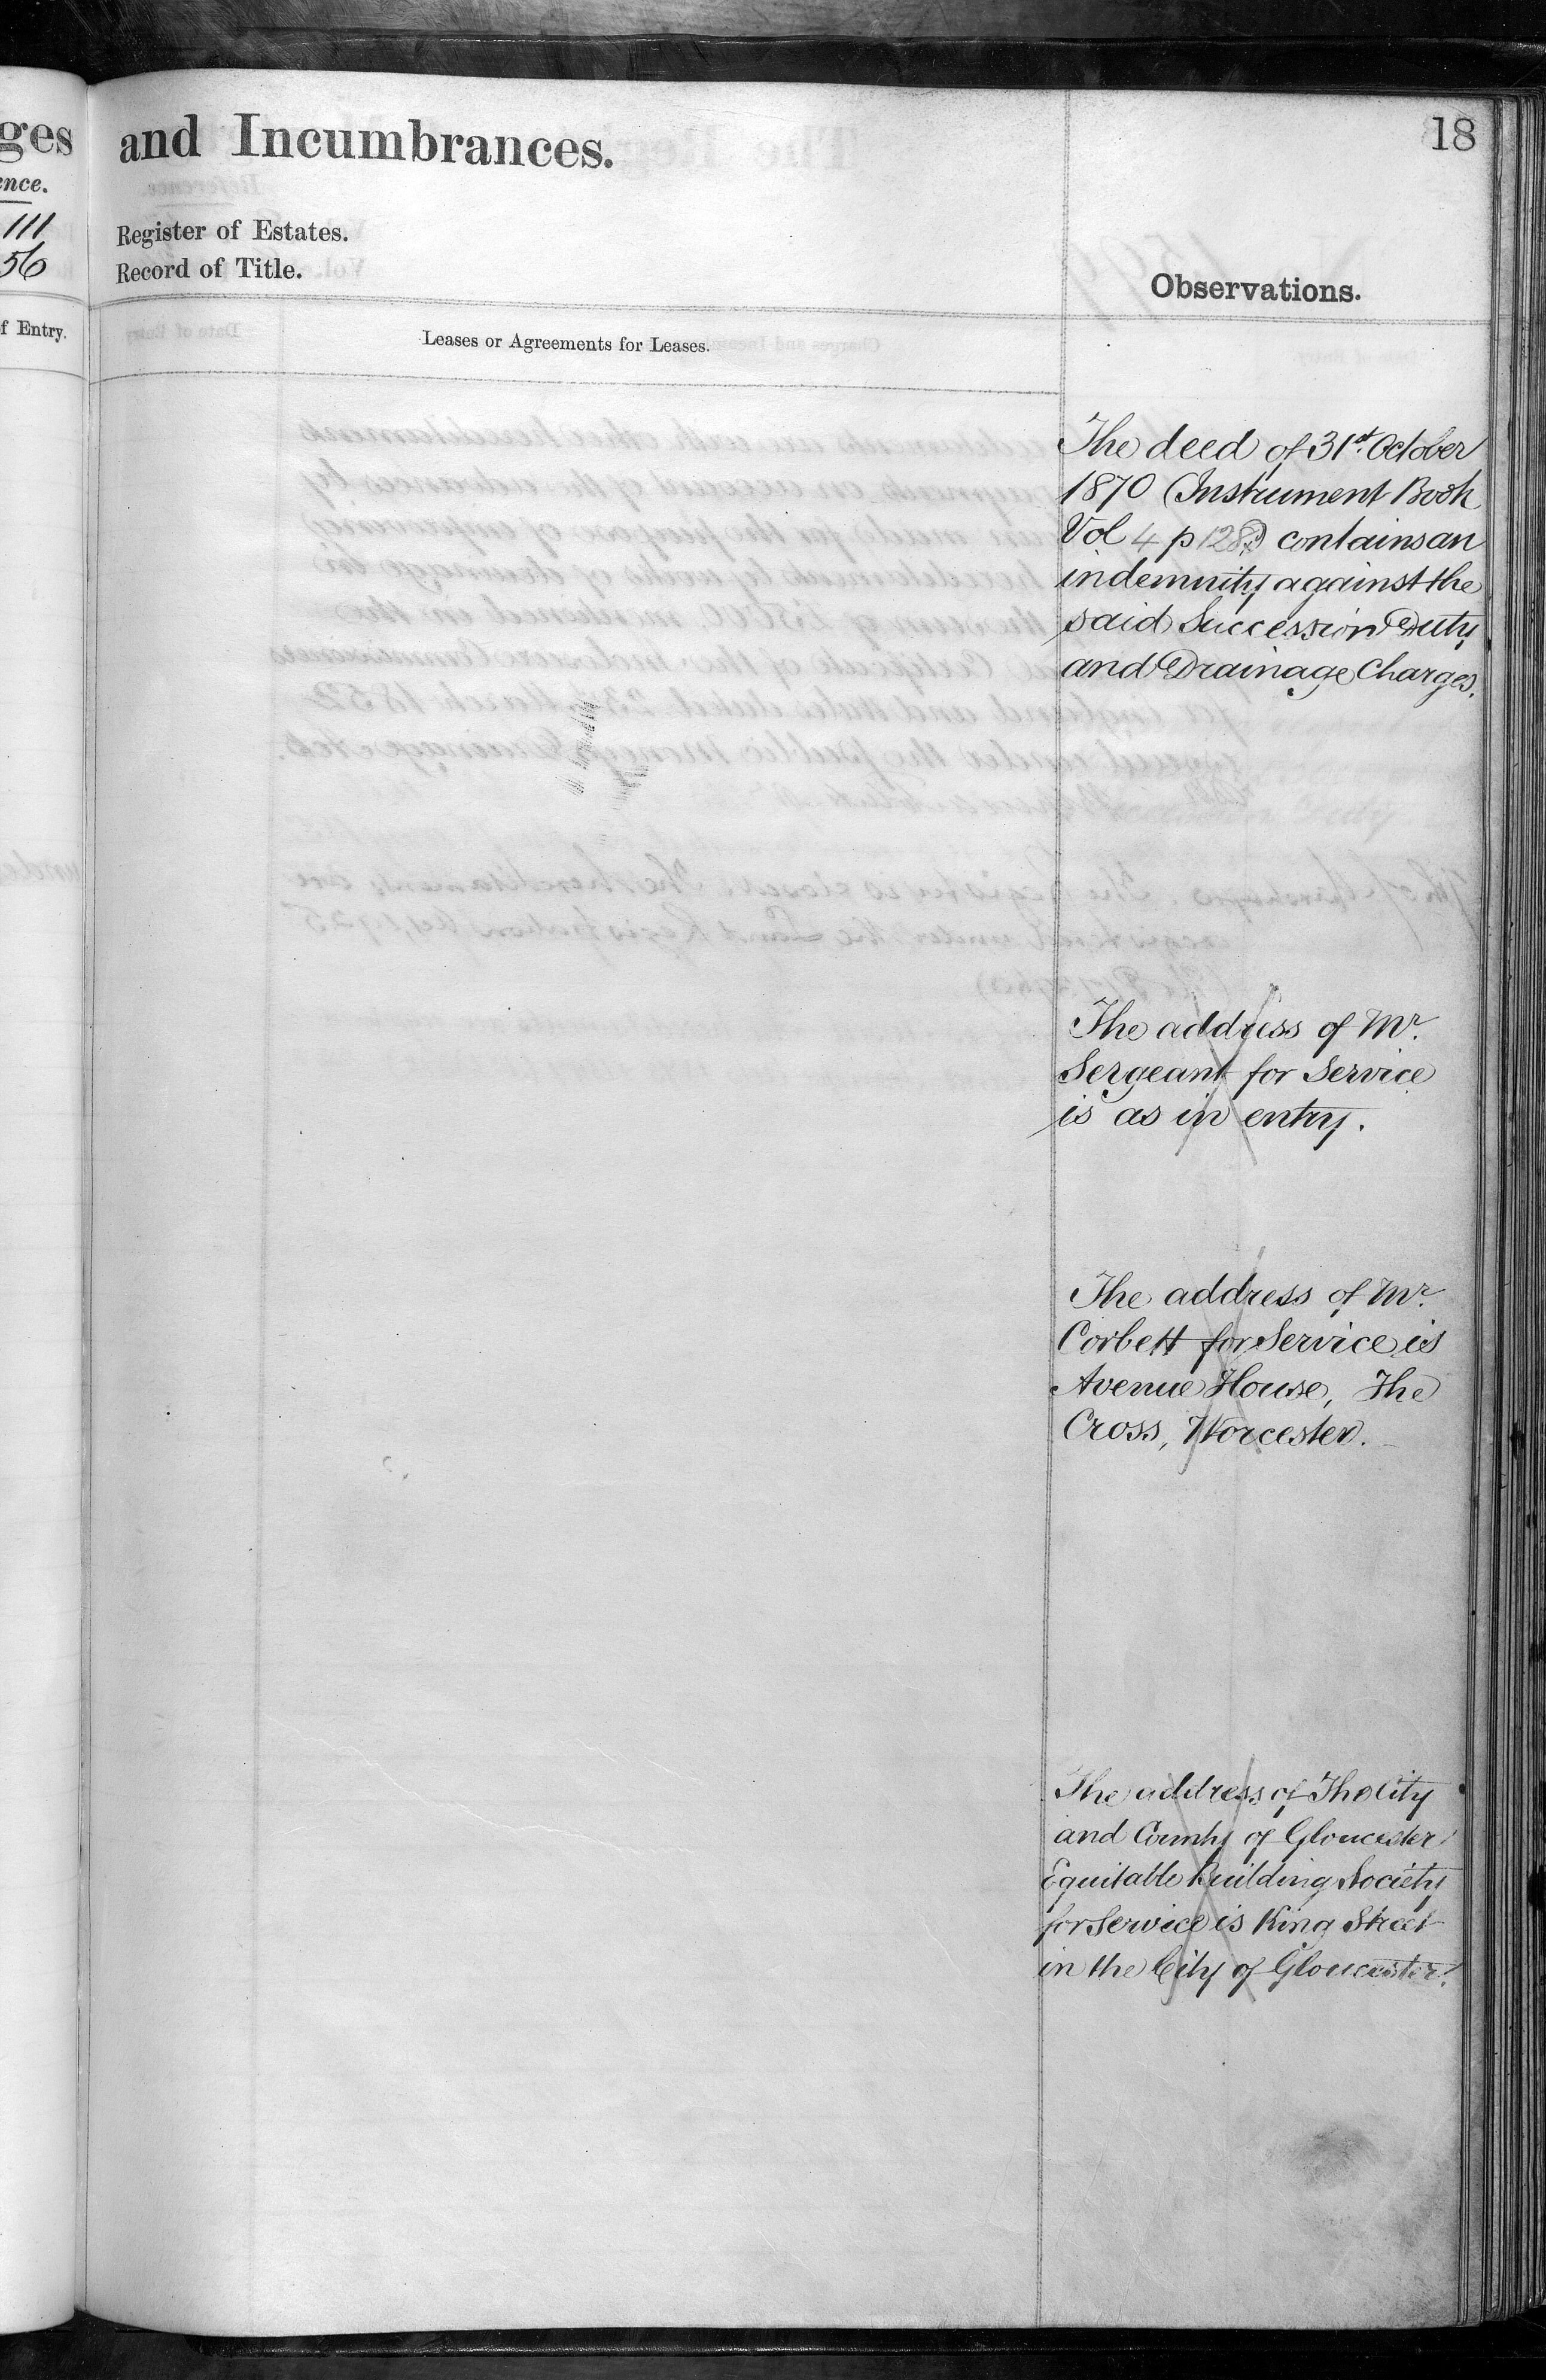 ges
ence.
111
56
f Entry.
and Incumbrances.
18
Register of Estates.
Record of Title.
Observations.
Leases or Agreements for Leases.
The deed of 31st October
1870 (Instrument Book
Vol 4 p 128) contains an
indemnity against the
said Succession Duty
and Drainage Charges.
The address of Mr.
Sergeant for Service
is as in entry.
The address of Mr.
Corbett for Service is
Avenue House, The
Cross, Worcester.
The address of The City
and County of Gloucester
Equitable Building Society
for Service is King Street
in the City of Gloucester.